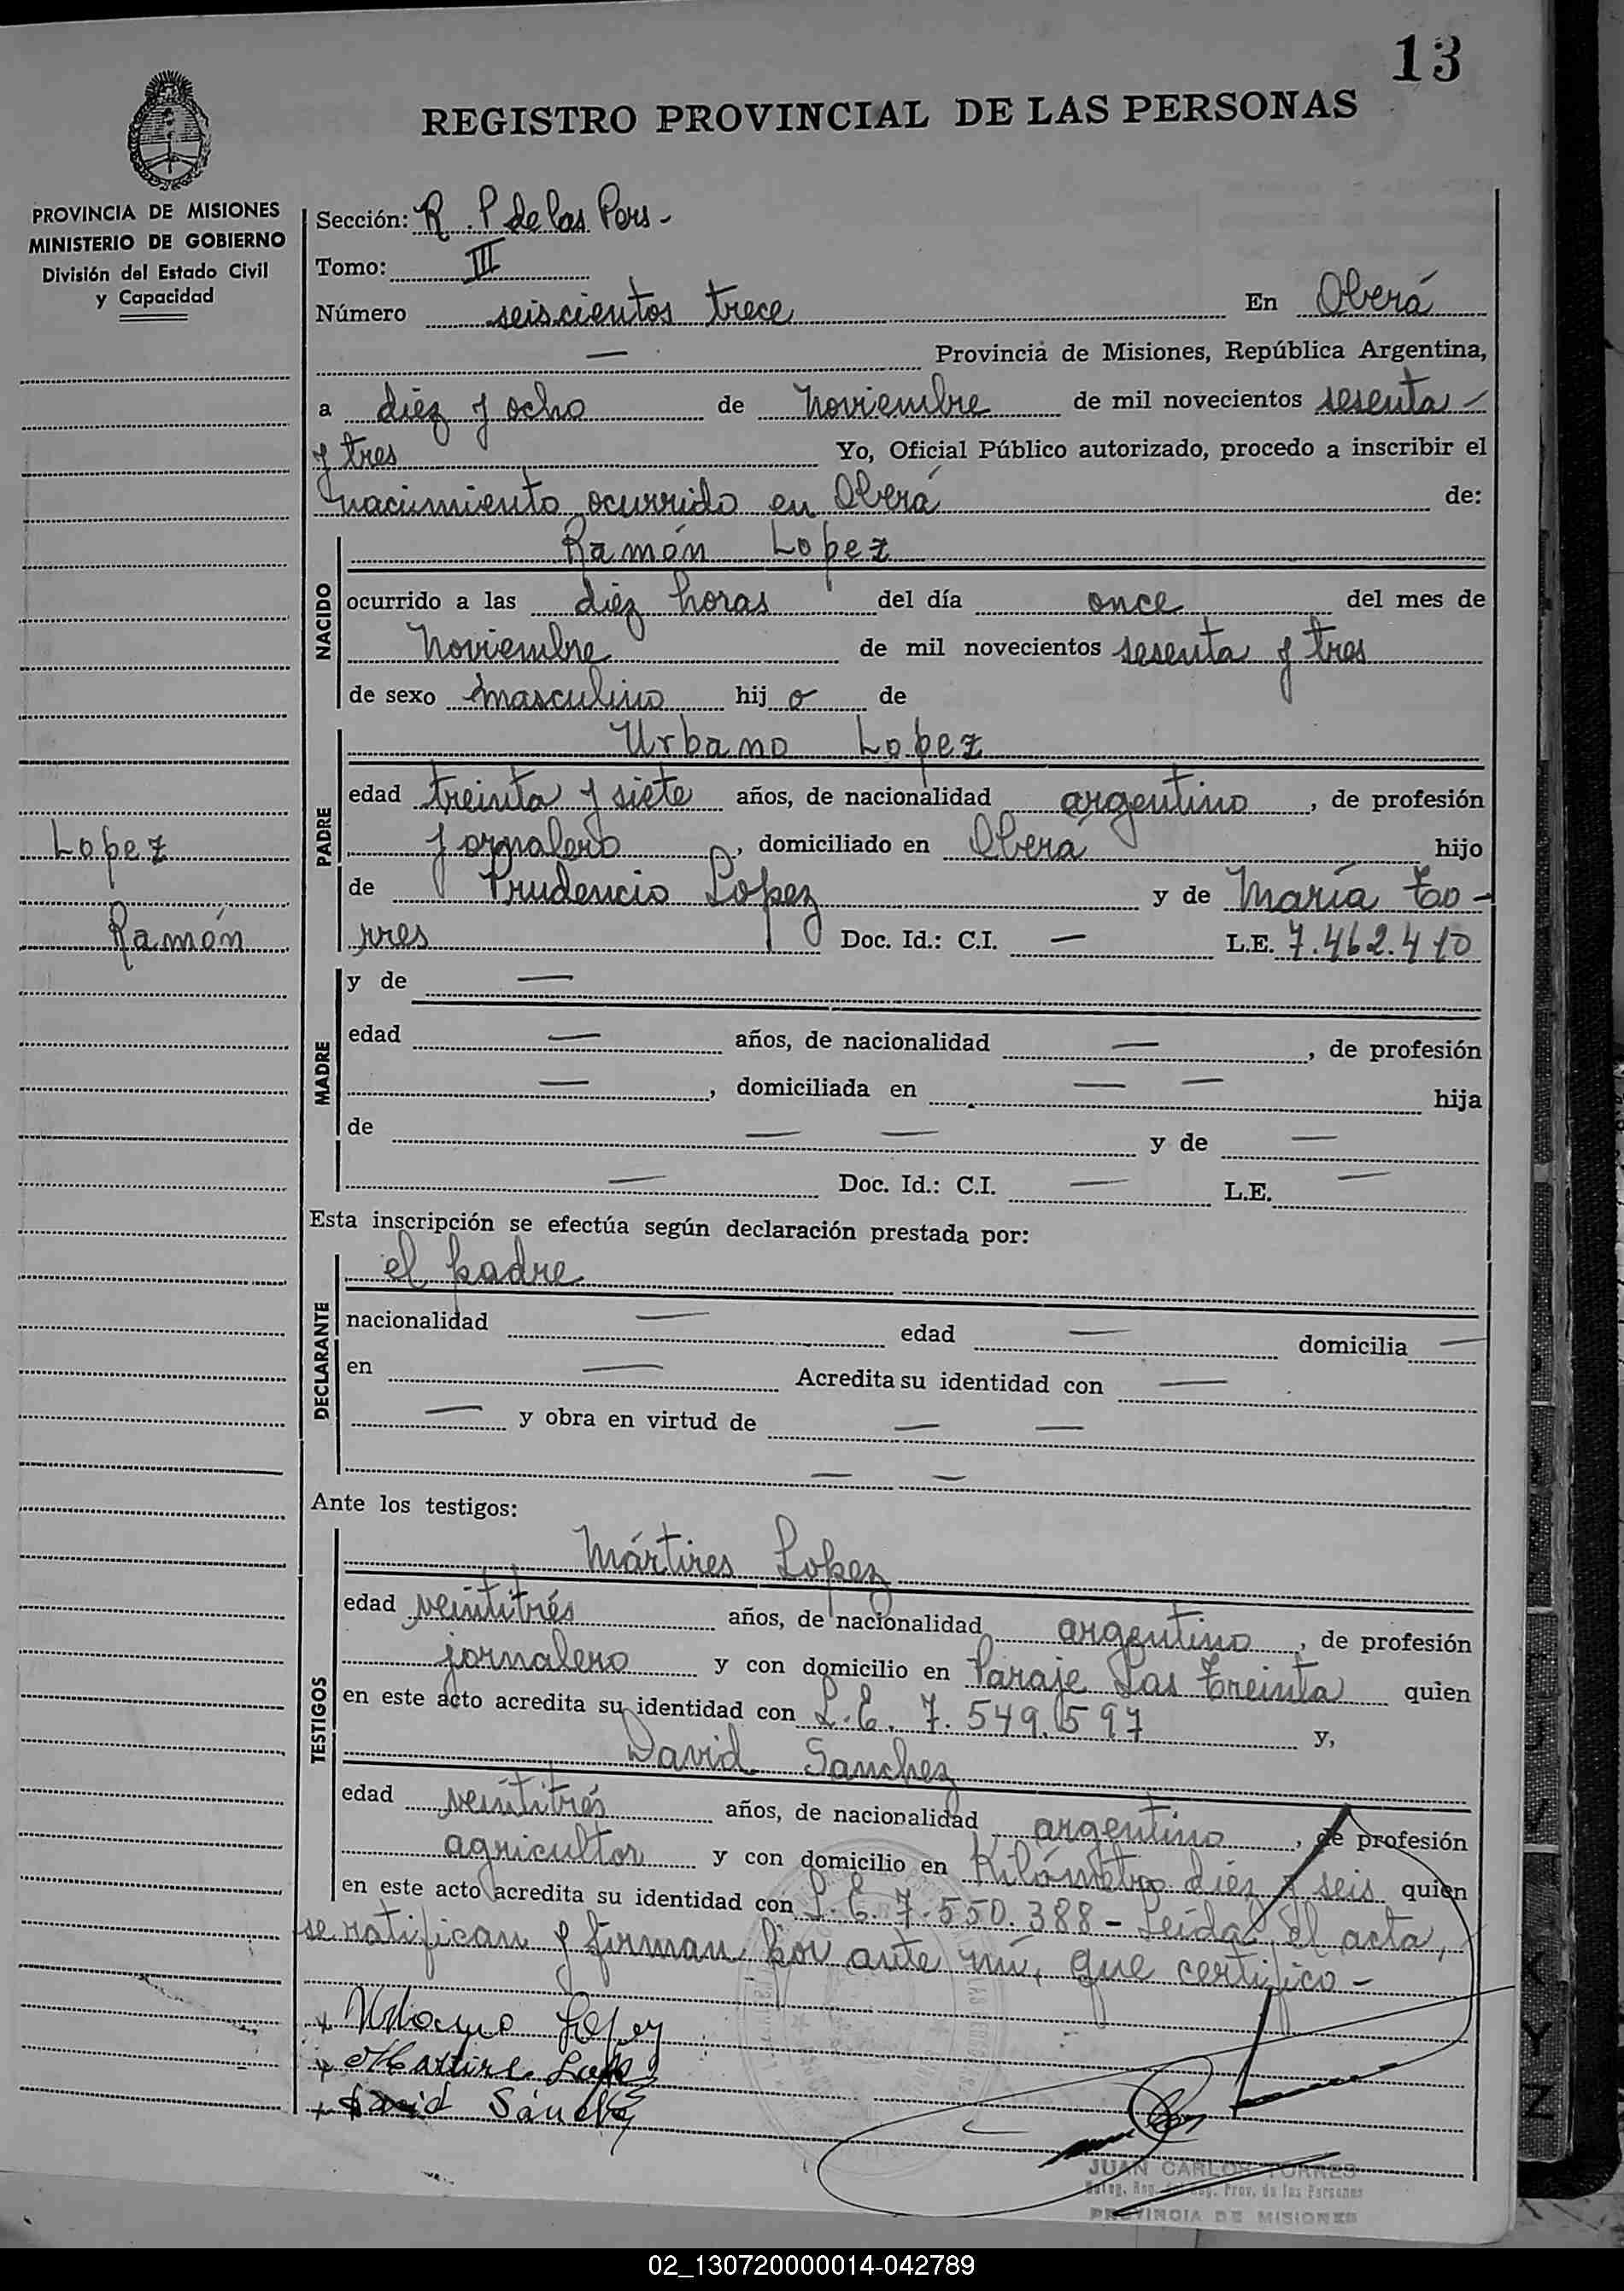 13
REGISTRO PROVINCIAL DE LAS PERSONAS
PROVINCIA DE MISIONES
MINISTERIO DE GOBIERNO
División del Estado Civil
y Capacidad
Sección: R. P de las Pers -
Tomo: III
Número seiscientos trece En Oberá
— Provincia de Misiones, República Argentina,
a diez y ocho de noviembre de mil novecientos sesenta -
y tres Yo, Oficial Público autorizado, procedo a inscribir el
nacimiento ocurrido en Oberá de:
NACIDO
Ramón Lopez
ocurrido a las diez horas del día once del mes de
noviembre de mil novecientos sesenta y tres
de sexo masculino hij o de
PADRE
Urbano Lopez
edad treinta y siete años, de nacionalidad argentino, de profesión
jornalero, domiciliado en Oberá hijo
de Prudencio Lopez y de María To-
rres Doc. Id.: C.I. — L.E. 7.462.410
Lopez
Ramón
MADRE
y de —
edad — años, de nacionalidad —, de profesión
—, domiciliada en — — hija
de — — y de —
— Doc. Id.: C.I. — L.E. —
Esta inscripción se efectúa según declaración prestada por:
DECLARANTE
el padre
nacionalidad — edad — domicilia —
en — Acredita su identidad con —
— y obra en virtud de — —
— —
Ante los testigos:
TESTIGOS
Mártires Lopez
edad veintitrés años, de nacionalidad argentino, de profesión
jornalero y con domicilio en Paraje Las Treinta quien
en este acto acredita su identidad con L.E. 7.549.597 y,
David Sanchez
edad veintitrés años, de nacionalidad argentino, de profesión
agricultor y con domicilio en Kilómetro diez y seis quien
en este acto acredita su identidad con L.E. 7.550.388 - Leída el acta,
se ratifican y firman por ante mí, que certifico -
x Urbano Lopez
x Martires Lopez
x David Sánchez
JUAN CARLOS TORRES
Prov. de las Personas
PROVINCIA DE MISIONES
02_130720000014-042789